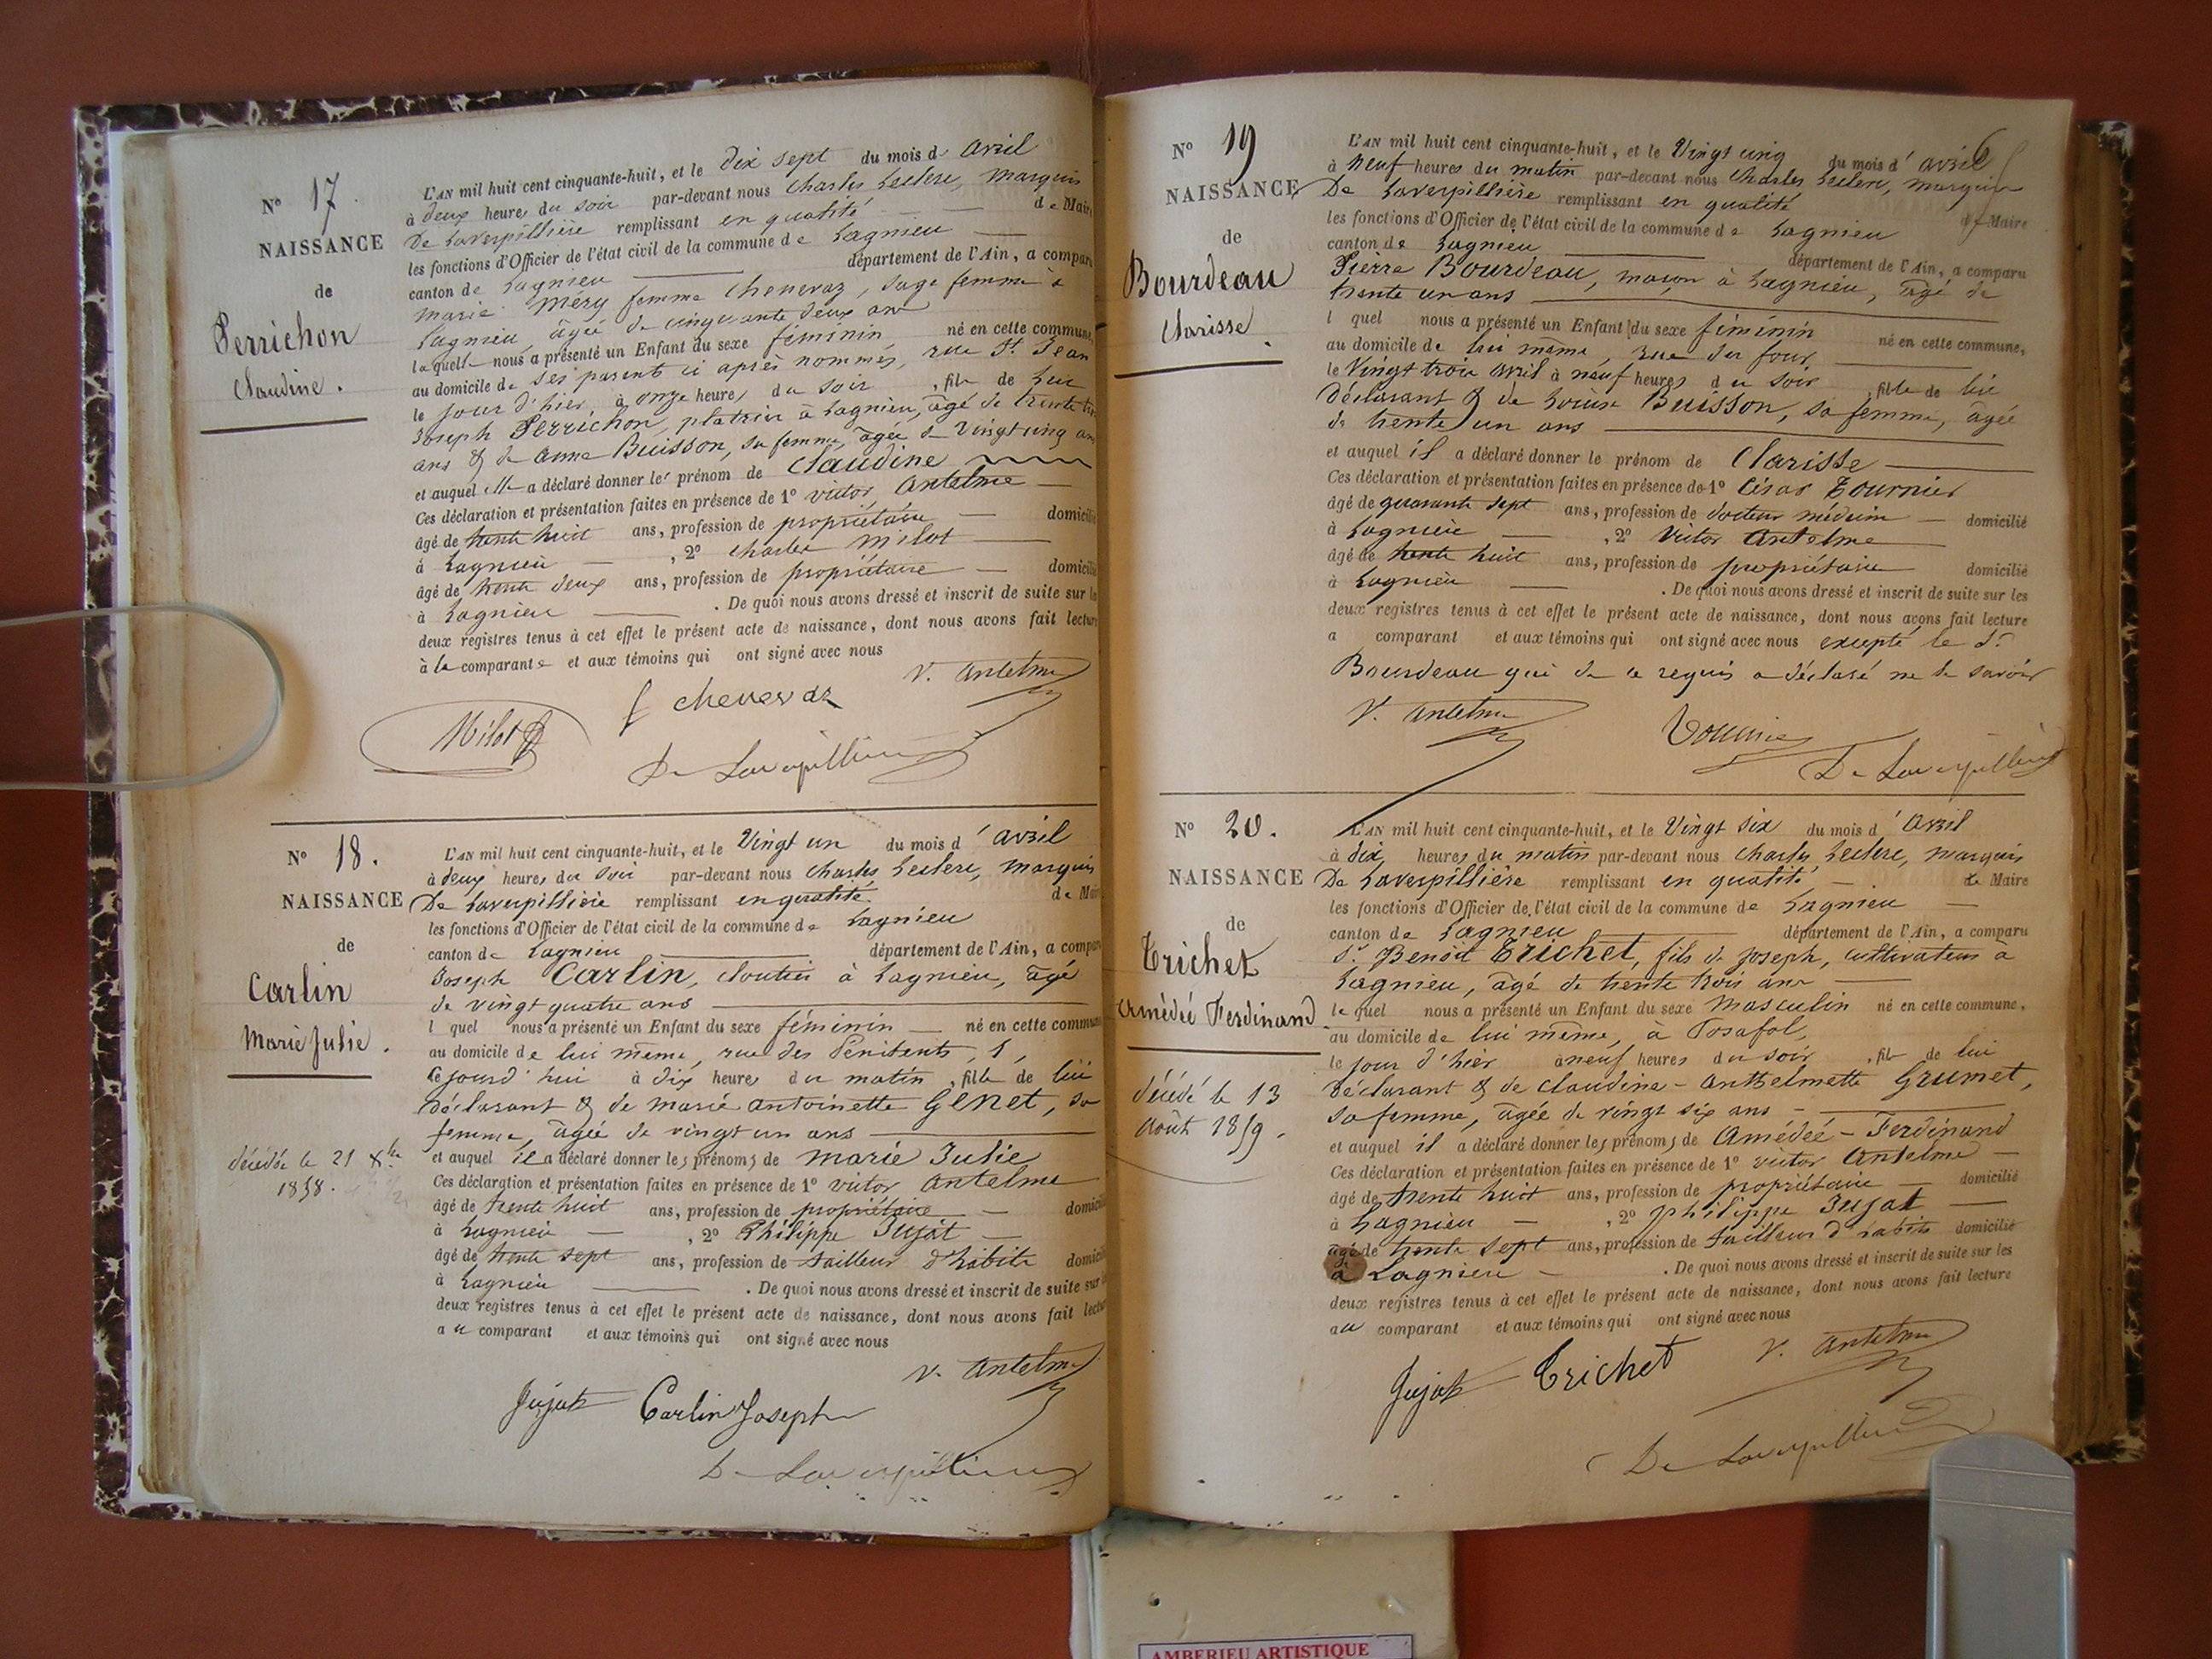 N° 17.
NAISSANCE
de
Perrichon
Claudine.
L'AN mil huit cent cinquante-huit, et le dix sept du mois d' avril
à deux heures du soir par-devant nous Charles Leclerc, marquis
De Laverpillière remplissant en qualité de Maire
les fonctions d'Officier de l'état civil de la commune de Lagnieu
canton de Lagnieu département de l'Ain, a comparu
marie Méry femme Chenevaz, sage femme à
Lagnieu, âgée de cinquante deux ans
laquelle nous a présenté un Enfant du sexe féminin né en cette commune,
au domicile de ses parents ci après nommés, rue St. Jean
le jour d'hier, à onze heures du soir, fille de
Joseph Perrichon, platrier à Lagnieu, âgé de trente
ans & de anne Buisson, sa femme, âgée de vingt cinq ans
et auquel elle a déclaré donner le prénom de Claudine
Ces déclaration et présentation faites en présence de 1° victor Antelme
âgé de trente huit ans, profession de propriétaire domicilié
à Lagnieu, 2° Charles Milot
âgé de trente deux ans, profession de propriétaire domicilié
à Lagnieu. De quoi nous avons dressé et inscrit de suite sur les
deux registres tenus à cet effet le présent acte de naissance, dont nous avons fait lecture
à la comparante et aux témoins qui ont signé avec nous
V. Antelme
f chenevaz
Milot
De Laverpillière
N° 18.
NAISSANCE
de
Carlin
Marie Julie.
décédée le 21 Xbre
1858.
L'AN mil huit cent cinquante-huit, et le Vingt un du mois d' avril
à deux heures du soir par-devant nous Charles Leclerc, marquis
De Laverpillière remplissant en qualité de Maire
les fonctions d'Officier de l'état civil de la commune de Lagnieu
canton de Lagnieu département de l'Ain, a comparu
Joseph Carlin, cloutier à Lagnieu, âgé
de vingt quatre ans
lequel nous a présenté un Enfant du sexe féminin né en cette commune
au domicile de lui même, rue des Pénitents,
ce jourd'hui à dix heures du matin, fille de lui
déclarant & de marie antoinette Genet, sa
femme, âgée de vingt un ans
et auquel il a déclaré donner les prénoms de marie Julie
Ces déclaration et présentation faites en présence de 1° victor antelme
âgé de trente huit ans, profession de propriétaire domicilié
à Lagnieu, 2° Philippe Jujat
âgé de trente sept ans, profession de tailleur d'habits domicilié
à Lagnieu. De quoi nous avons dressé et inscrit de suite sur les
deux registres tenus à cet effet le présent acte de naissance, dont nous avons fait lecture
au comparant et aux témoins qui ont signé avec nous
V. Antelme
Jujat Carlin Joseph
De Laverpillière
N° 19
NAISSANCE
de
Bourdeau
Clarisse.
L'AN mil huit cent cinquante-huit, et le Vingt cinq du mois d' avril
à neuf heures du matin par-devant nous Charles Leclerc, marquis
De Laverpillière remplissant en qualité de Maire
les fonctions d'Officier de l'état civil de la commune de Lagnieu
canton de Lagnieu département de l'Ain, a comparu
Pierre Bourdeau, maçon à Lagnieu, âgé de
trente un ans
l quel nous a présenté un Enfant du sexe féminin né en cette commune,
au domicile de lui même, rue du four
le Vingt trois avril à neuf heures du soir, fille de lui
déclarant & de Louise Buisson, sa femme, âgée
de trente un ans
et auquel il a déclaré donner le prénom de Clarisse
Ces déclaration et présentation faites en présence de 1° César Tournier
âgé de quarante sept ans, profession de docteur médecin domicilié
à Lagnieu, 2° Victor Antelme
âgé de trente huit ans, profession de propriétaire domicilié
à Lagnieu. De quoi nous avons dressé et inscrit de suite sur les
deux registres tenus à cet effet le présent acte de naissance, dont nous avons fait lecture
a comparant et aux témoins qui ont signé avec nous excepté le Sr.
Bourdeau qui de ce requis a déclaré ne le savoir
V. Antelme
Tournier
De Laverpillière
N° 20.
NAISSANCE
de
Trichet
Amédée Ferdinand
décédé le 13
août 1859.
L'AN mil huit cent cinquante-huit, et le Vingt six du mois d' avril
à dix heures du matin par-devant nous Charles Leclerc, marquis
De Laverpillière remplissant en qualité de Maire
les fonctions d'Officier de l'état civil de la commune de Lagnieu
canton de Lagnieu département de l'Ain, a comparu
Sr. Benoit Trichet, fils de Joseph, cultivateur à
Lagnieu, âgé de trente trois ans
lequel nous a présenté un Enfant du sexe masculin né en cette commune,
au domicile de lui même, à Posafol,
le jour d'hier à neuf heures du soir, fils de lui
déclarant & de Claudine-Anthelmette Grumet,
sa femme, âgée de vingt six ans
et auquel il a déclaré donner les prénoms de Amédée-Ferdinand
Ces déclaration et présentation faites en présence de 1° victor Antelme
âgé de trente huit ans, profession de propriétaire domicilié
à Lagnieu, 2° Philippe Jujat
âgé de trente sept ans, profession de tailleur d'habits domicilié
à Lagnieu. De quoi nous avons dressé et inscrit de suite sur les
deux registres tenus à cet effet le présent acte de naissance, dont nous avons fait lecture
au comparant et aux témoins qui ont signé avec nous
Jujat Trichet V. Antelme
De Laverpillière
AMBERIEU ARTISTIQUE